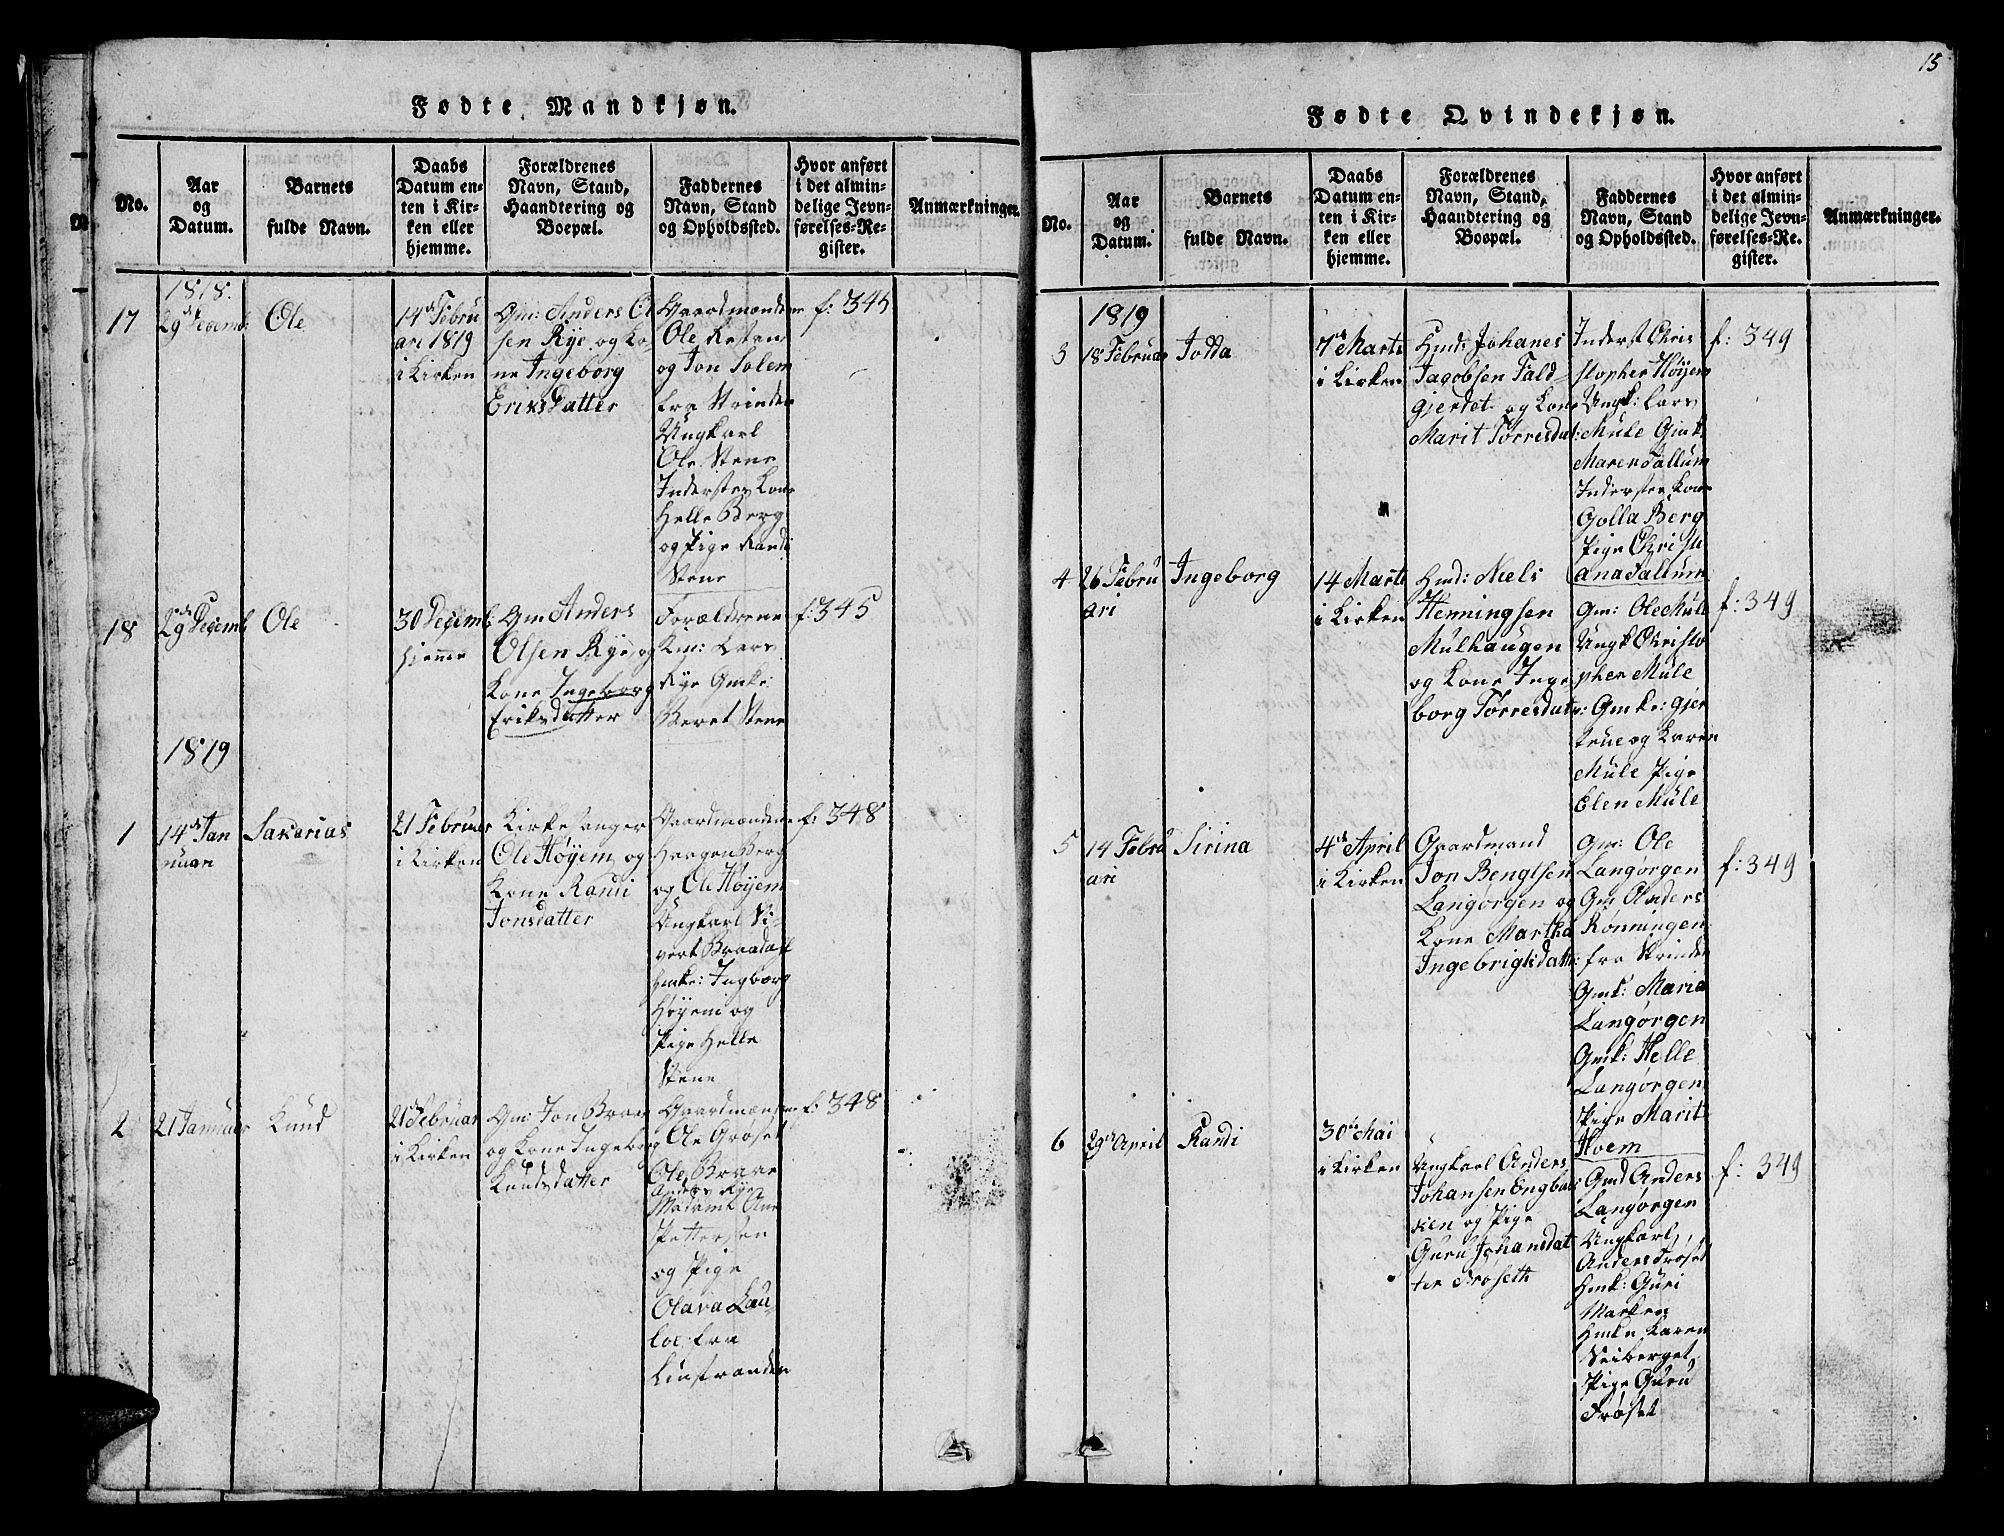 15
Fødte Mandkjøn.
No.
Aar
og
Datum.
Barnets
fulde Navn.
Daabs
Datum en-
ten i Kir-
ken eller
hjemme.
Forældrenes
Navn, Stand,
Haandtering og
Boepæl.
Faddernes
Navn, Stand
og Opholdssted.
Hvor anført
i det almin-
delige Jevn-
førelses-Re-
gister.
Anmærkninger.
1818.
17
29de Decemb:
Ole
14de Febru
ari 1819
i Kirken
Gm: Anders Ol
sen Rye og Ko-
ne Ingeborg
EriksDatter
Gaardmændene
Ole Resten
og Jon Solem
fra Strinden
Ungkarl
Ole Stene
Inderster Kone
Helle Berg
og Pige Randi
Stene
f: 345
18
29de Decemb
Ole
30 Decemb:
hiemme
Gm Anders
Olsen Rye og
Kone Ingeborg
Eriksdatter
Forældrene
Lars
Rye Gmke:
Beret Stene
f: 345
1819
1
14de Jan
nuari
Sakarias
21 Februar
i Kirken
Kirkesanger
Ole Høyem og
Kone Randi
Jonsdatter
Gaardmændene
Haagen Berg
og Ole Høyem
Ungkarl Si-
vert Braadall
Hmke: Ingborg
Høyem og
Pige Helle
Stene
f: 348
2
21 Januar
Knud
21 Februar
i Kirken
Gm: Jon Braae
og Kone Ingeborg
Knudsdatter
Gaardmænden
Ole Grøset
Ole Braae
Anders Rye
Madamk Ane
Pettersen
og Pige
Olava Lau-
loe fra
Leinstranden
f: 348
Fødte Qvindekjøn.
No.
Aar
og
Datum.
Barnets
fulde Navn.
Daabs
Datum en-
ten i Kir-
ken eller
hjemme.
Forældrenes
Navn, Stand,
Haandtering og
Boepæl.
Faddernes
Navn, Stand
og Opholdssted.
Hvor anført
i det almin-
delige Jevn-
førelses-Re-
gister.
Anmærkninger.
1819
3
18 Februar
Jodda
7de Marts
i Kirken
Hmd: Johanes
Jacobsen Fald-
gjerdet og Kone
Marit Torresdat:
Inderst Chris
stopher Høyem
Ungk: Lars
Mule Gmk
Maren Fallum
Inderster Kone
Golla Berg
Pige Christi
ana Fallum
f: 349
4
26 Febru
ari
Ingeborg
14 Marts
i Kirken
Hmd: Niels
Henningsen
Mulhaugen
og Kone Inge
borg Torresdat:
Gm: Ole Mule
Ungk Christo
pher Mule
Gmke: Gjer
true og Karen
Mule Pige
Elen Mule
f: 349
5
14 Febru
ari
Sirina
4de April
i Kirken
Gaardmand
Jon Bengtsen
Langørgen og
Kone Martha
Ingebrigtsdatt:
Gm: Ole
Langørgen
Gm Anders
Rønningen
fra Strinden
Gmk: Maria
Langørgen
Gmk: Helle
Langørgen
Pige Marit
Hoem
f: 349
6
29de April
Randi
30te Mai
i Kirken
Ungkarl Anders
Johansen Engbak
sien og Pige
Guru Johansdat
ter Frøseth
Gmd Anders
Langørgen
Ungkarl
Anders Frøset
Hmk: Guri
Marken
Hmkn Karen
Seiberget
Pige Guru
Frøset
f: 349